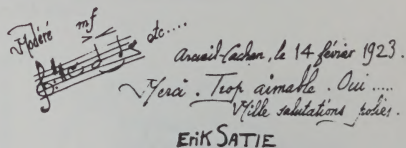 Modéré
mf
etc....
Arcueil-Cachan, le 14 février 1923.
Merci. Trop aimable. Oui .....
Mille salutations polies.
ERIK SATIE